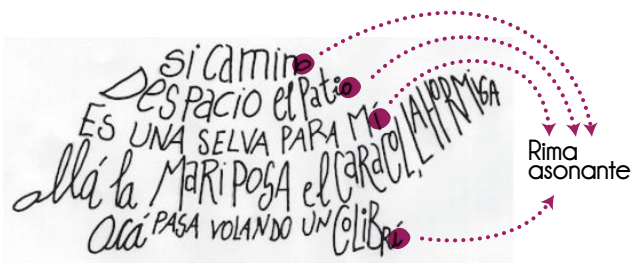 si camino
DesPacio el Patio
Es UNA SELVA PARA Mí
allá la MARiPOSA el CARACOL, LA HORMIGA
Acá PASA VOLANDO UN COLIBRí
Rima
asonante